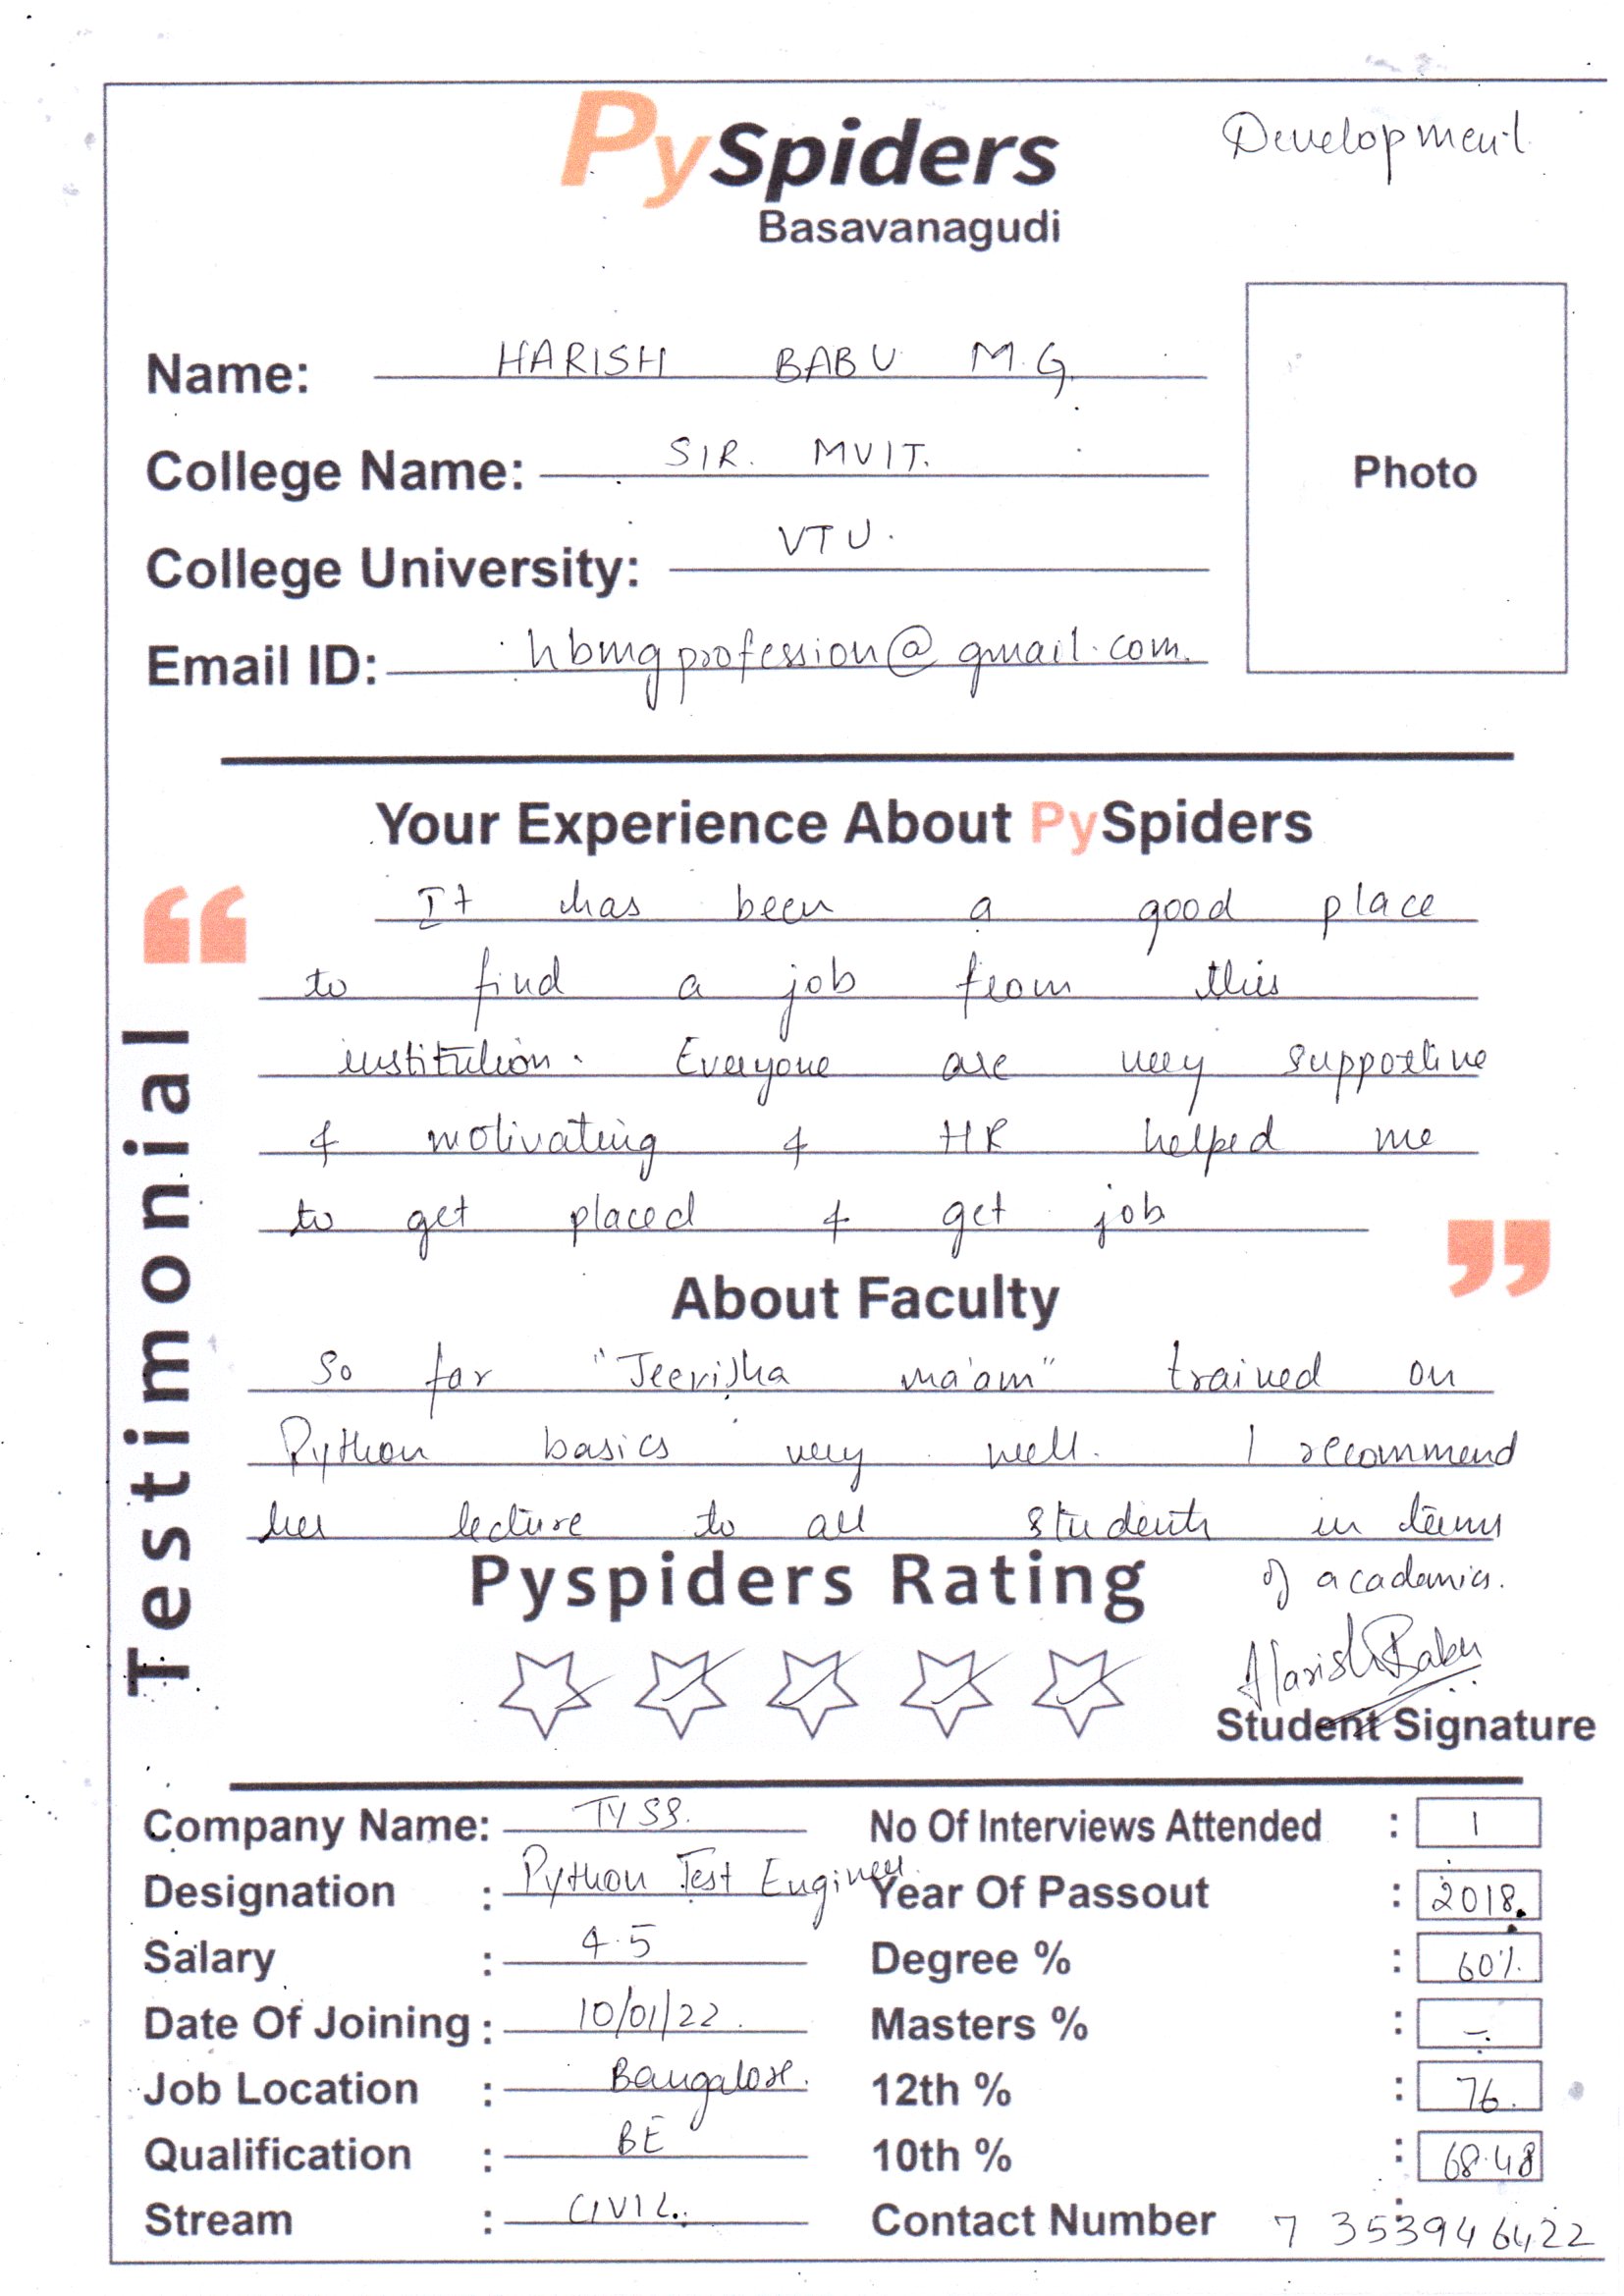 PySpiders
Basavanagudi
Development
Name: HARISH BABU M.G.
College Name: SIR. MVIT.
College University: VTU.
Email ID: hbmgprofession@gmail.com.
Photo
Your Experience About PySpiders
It has been a good place
to find a job from this
institution. Everyone are very supportive
& motivating & HR helped me
to get placed & get job
Testimonial
About Faculty
So far "Jeerisha ma'am" trained on
Python basics very well. I recommend
her lecture to all students in terms
of academics.
Pyspiders Rating
Harish Babu
Student Signature
Company Name: TYSS.
Designation : Python Test Engineer.
Salary : 4.5
Date Of Joining : 10/01/22.
Job Location : Bangalore.
Qualification : BE
Stream : CIVIL.
No Of Interviews Attended : 1
Year Of Passout : 2018.
Degree % : 60%.
Masters % : -
12th % : 76.
10th % : 68.48
Contact Number : 7353946422